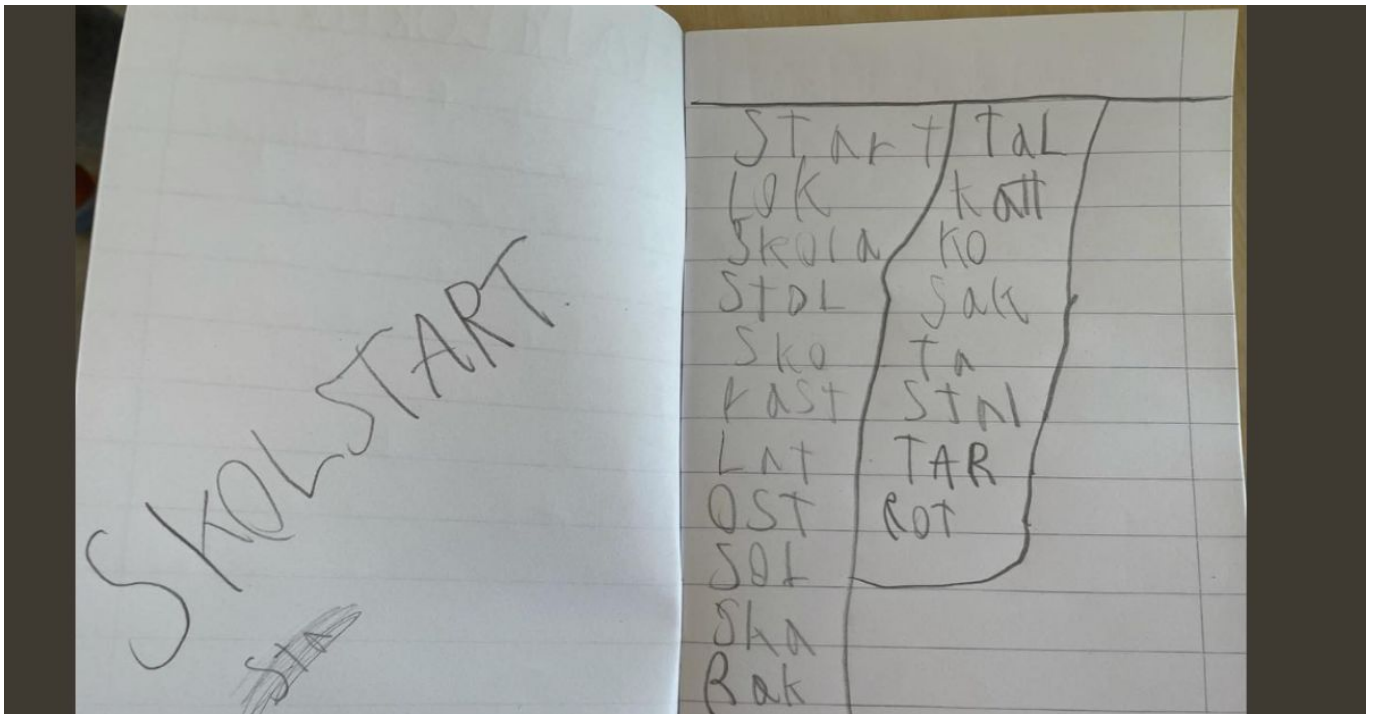 SKOLSTART.
STA
Start
LOK
Skola
StOL
Sko
kaSt
Lat
OST
SOL
Ska
Rak
TaL
Katt
KO
Sak
Ta
Stal
TAR
ROT